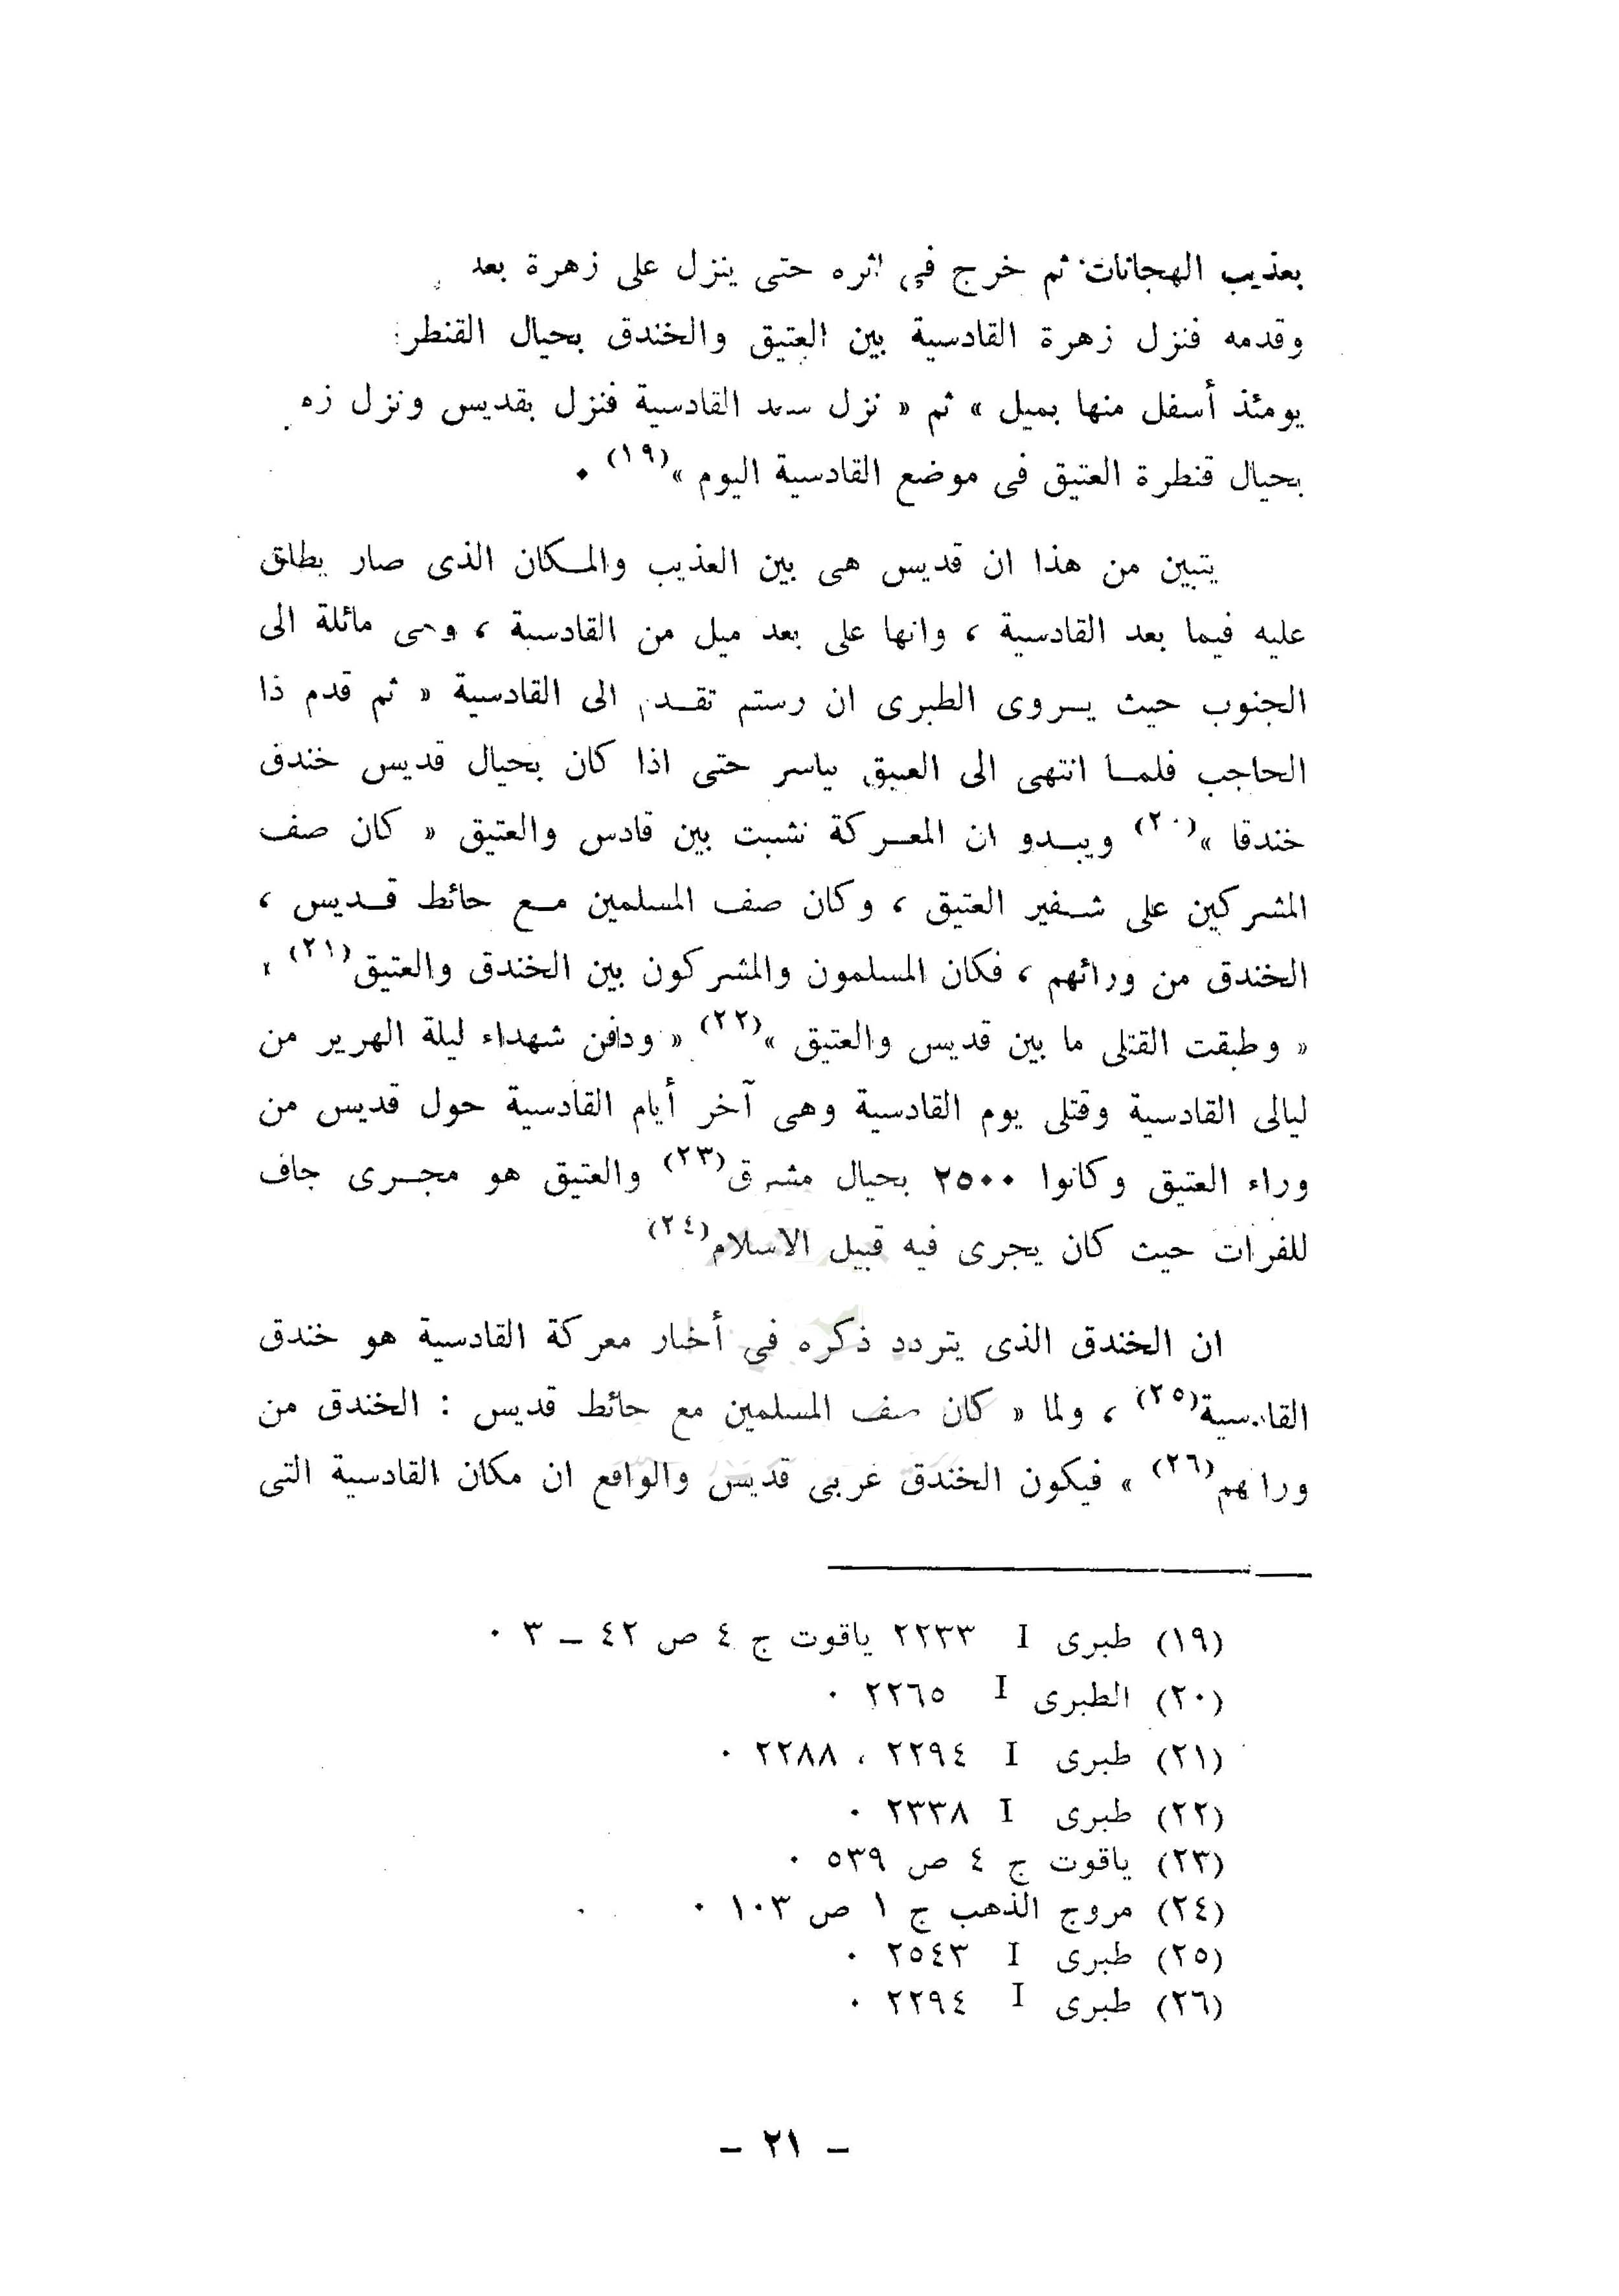 بعذيب الهجانات ثم خرج في اثره حتى ينزل على زهرة بعد
وقدمه فنزل زهرة القادسية بين العتيق والخندق بحيال القنطر
يومئذ أسفل منها بميل » ثم « نزل سعد القادسية فنزل بقديس ونزل زه
بحيال قنطرة العتيق فى موضع القادسية اليوم »(١٩) ٠
يتبين من هذا ان قديس هى بين العذيب والمـكان الذى صار يطلق
عليه فيما بعد القادسية ، وانها على بعد ميل من القادسية ، وهى مائلة الى
الجنوب حيث يـروى الطبرى ان رستم تقـدم الى القادسية « ثم قدم ذا
الحاجب فلمـا انتهى الى العتيق يباسر حتى اذا كان بحيال قديس خندق
خندقا »(٢٠) ويبـدو ان المعـركة نشبت بين قادس والعتيق « كان صف
المشركين على شـفير العتيق ، وكان صف المسلمين مـع حائط قـديس ،
الخندق من ورائهم ، فكان المسلمون والمشركون بين الخندق والعتيق(٢١) »
« وطبقت القتلى ما بين قديس والعتيق »(٢٢) « ودفن شهداء ليلة الهرير من
ليالى القادسية وقتلى يوم القادسية وهى آخر أيام القادسية حول قديس من
وراء العتيق وكانوا ٢٥٠٠ بحيال مشرق(٢٣) والعتيق هو مجـرى جاف
للفرات حيث كان يجرى فيه قبيل الاسلام(٢٤)
ان الخندق الذى يتردد ذكره في أخبار معركة القادسية هو خندق
القادسية(٢٥) ، ولما « كان صف المسلمين مع حائط قديس : الخندق من
ورائهم(٢٦) » فيكون الخندق غربى قديس والواقع ان مكان القادسية التى
(١٩) طبرى I ٢٢٣٣ ياقوت ج ٤ ص ٤٢ – ٣ ٠
(٢٠) الطبرى I ٢٢٦٥ ٠
(٢١) طبرى I ٢٢٩٤ ، ٢٢٨٨ ٠
(٢٢) طبرى I ٢٣٣٨ ٠
(٢٣) ياقوت ج ٤ ص ٥٣٩ ٠
(٢٤) مروج الذهب ج ١ ص ١٠٣ ٠
(٢٥) طبرى I ٢٥٤٣ ٠
(٢٦) طبرى I ٢٢٩٤ ٠
– ٢١ –